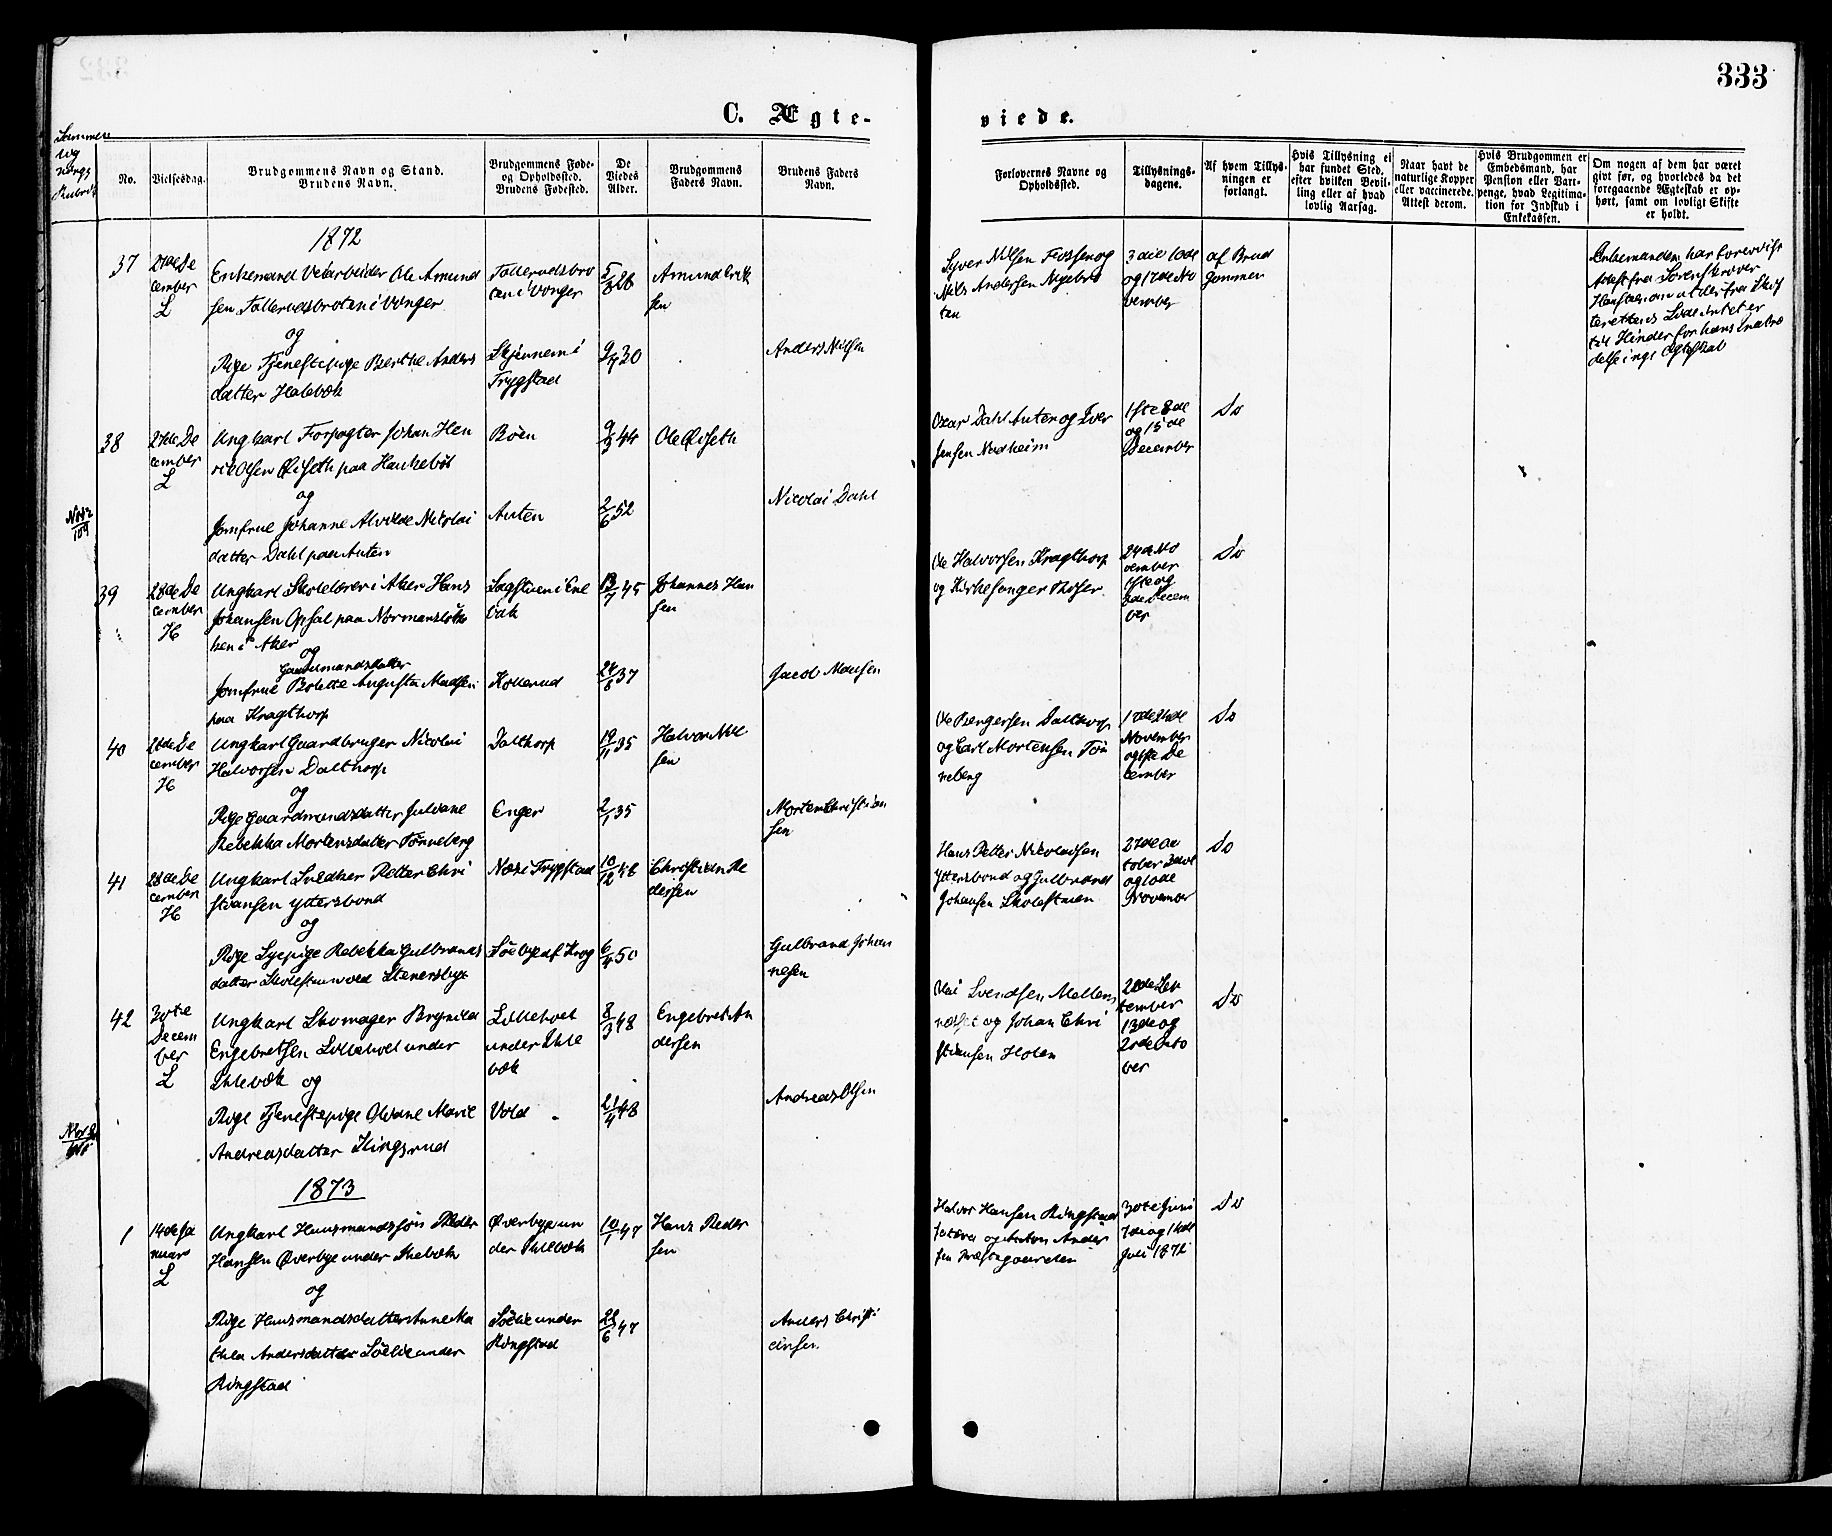 333
C. Ægte-
viede.
No.
Vielsesdag.
Brudgommens Navn og Stand.
Brudens Navn.
Brudgommens Føde-
og Opholdssted.
Brudens Fødested.
De
Viedes
Alder.
Brudgommens
Faders Navn.
Brudens Faders
Navn.
Forlovernes Navne og
Opholdssted.
Tillysnings-
dagene.
Af hvem Tillys-
ningen er
forlangt.
Hvis Tillysning ei
har fundet Sted,
efter hvilken Bevil-
ling eller af hvad
lovlig Aarsag.
Naar havt de
naturlige Kopper
eller vaccinerede.
Attest derom.
Hvis Brudgommen er
Embedsmand, har
Pension eller Vart-
penge, hvad Legitima-
tion for Indskud i
Enkekassen.
Om nogen af dem har været
givt før, og hvorledes da det
foregaaende Ægteskab er op-
hørt, samt om lovligt Skifte
er holdt.
1872
37
27de De
cember
L
Enkemand Veiarbeider Ole Amund
sen Tallerudsbroten i Vonger
og
Pige Tjenestepige Berthe Anders
datter Holebæk
Tallerudsbro
ten i Vonger
Skjønnem i
Trygstad
5/8 28
9/7 30
Amund Erik
sen
Anders Nilsen
Syver Nilsen Fossen og
Nils Andersen Nybro
ten
3die 10de
og 17de No
vember
af Brud
gommen
Enkemanden har forevist
Attest fra Sorenskriver
til Hinder for hans Indtræ
delse i nyt Ægteskab
38
27de De
cember
L
Ungkarl Forpagter Johan Hen
rik Olsen Øiseth paa Haukebøl
og
Jomfrue Johanne Alvilde Nicolai
datter Dahl paa Anten
Böen
Anten
9/3 44
2/6 52
Ole Øiseth
Nicolai Dahl
Oscar Dahl Anten og Iver
Jensen Nordheim
1ste 8de
og 15de
December
Do
39
28de De
cember
H
Ungkarl Skolelærer i Aker Hans
Johansen Opsal paa Normansløk
ken i Aker
og
Gaardmandsdatter
Jomfrue Bolette Augusta Madsen
paa Kragthorp
Sagstuen i Ene
bak
Kollerud
13/7 45
24/8 37
Johannes Han
sen
Jacob Madsen
Ole Halvorsen Kragthorp
og Kirkesanger Moser
24de No
vember
1ste og
8de Decem
ber
Do
40
28de De
cember
H
Ungkarl Gaardbruger Nicolai
Halvorsen Dalthorp
og
Pige Gaardmandsdatter Julvane
Rebekka Mortensdatter Tønneberg
Dalthorp
Enger
19/11 35
2/1 35
Halvor Nil
sen
Morten Christian
sen
Ole Bergersen Dalthorp
og Carl Mortensen Tøn
neberg
17de 24de
November
og 1ste De
cember
Do
41
28de De
cember
H
Ungkarl Snedker Petter Chri
stiansen Yttersbond
og
Pige Syepige Rebekka Gulbrands
datter Skolestuen ved Stenersbye
Næs i Trygstad
Söebye af Krog
10/12 48
6/4 50
Christian Pe
dersen
Gulbrand Johan
nesen
Hans Petter Nikolaisen
Yttersbond og Gulbrand
Johansen Skolestuen
27de Oc
tober 3die
og 10de
November
Do
42
30te
Decem
ber
L
Ungkarl Skomager Brynild
Engebretsen Lilleholt under
Ihlebæk og
Pige Tjenestepige Oleane Marie
Andreasdatter Klingsrud
Lilleholt
under Ihle
bæk
Vold
8/3 48
21/4 48
Engebret An
dersen
Andreas Olsen
Svendsen Mellem
næset og Johan Chri
stiansen Holen
tember
13de og
20de Octo
ber
Do
1873
1
14de Ja
nuar
L
Ungkarl Husmandssøn Peder
Hansen Øverbye under Ihlebæk
og
Pige Husmandsdatter Anne Ma
thea Andersdatter Söelie under
Ringstad
Øverbye un
der Ihlebæk
Söelie under
Ringstad
10/1 47
28/6 47
Hans Peder
sen
Anders Christi
ansen
Halvor Hansen Ringstad
og Anton Ander
sen Præstegaarden
30te Juni
7de og 14de
Juli 1872
Do